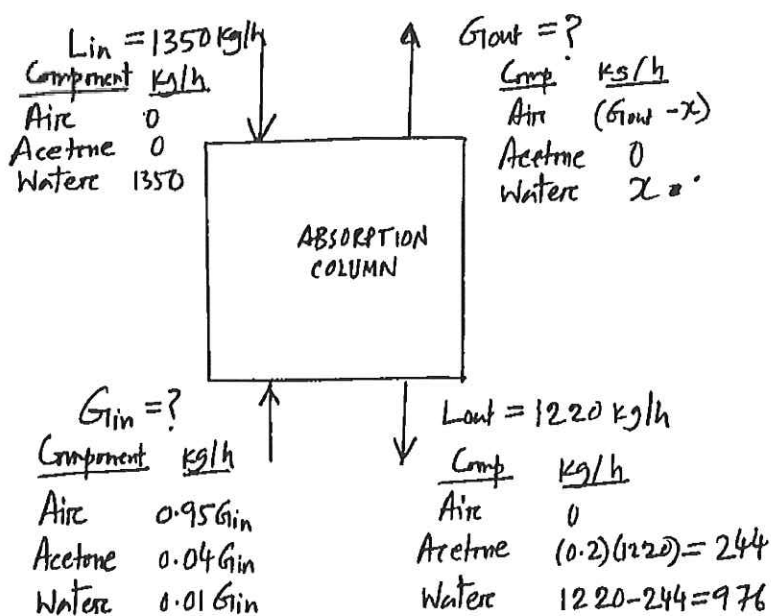 Lin = 1350 kg/h
Component kg/h
Air 0
Acetone 0
Water 1350
Gout = ?
Comp kg/h
Air (Gout - x)
Acetone 0
Water x
ABSORPTION
COLUMN
Gin = ?
Component kg/h
Air 0.95Gin
Acetone 0.04Gin
Water 0.01Gin
Lout = 1220 kg/h
Comp kg/h
Air 0
Acetone (0.2)(1220) = 244
Water 1220-244=976